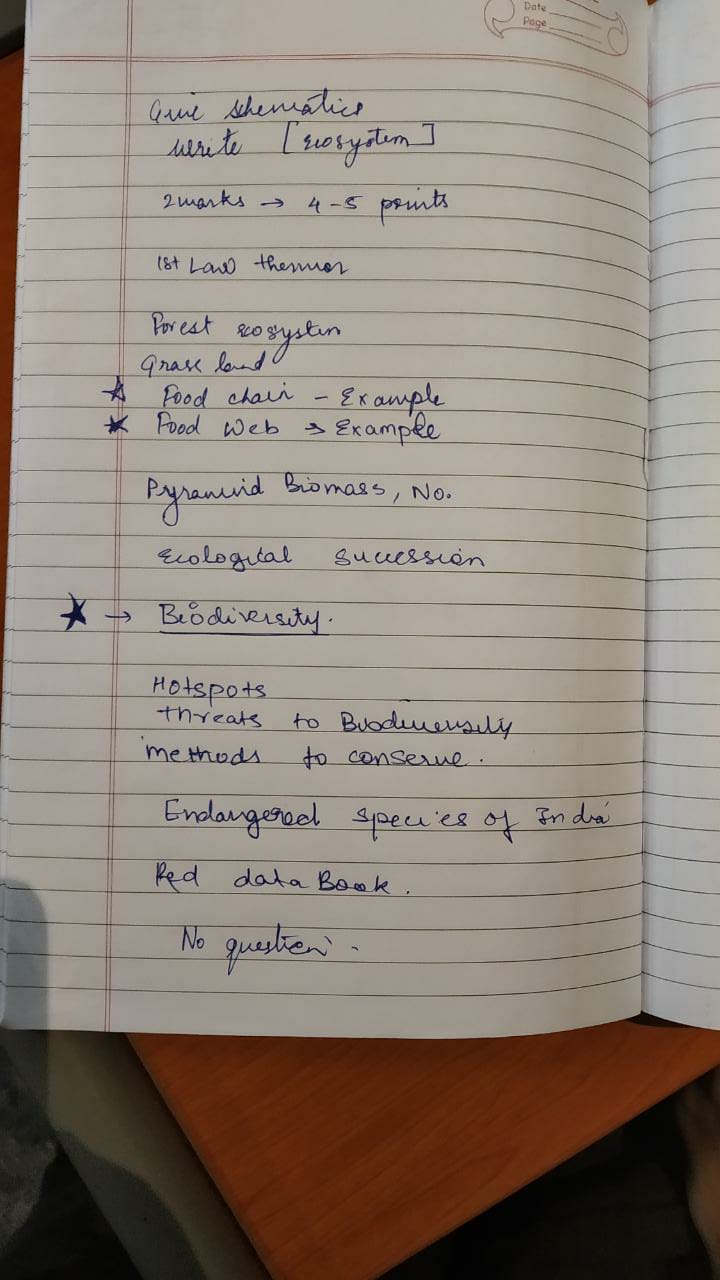 Date
Page
Give schematics
write [ecosystem]
2 marks → 4-5 points
1st Law thermo
Forest ecosystem
Grass land
☆ Food chain - Example
★ Food Web → Example
Pyramid Biomass, No.
Ecological succession
★ → Biodiversity.
Hotspots
threats to Biodiversity
methods to conserve.
Endangered species of India
Red data Book.
No question -